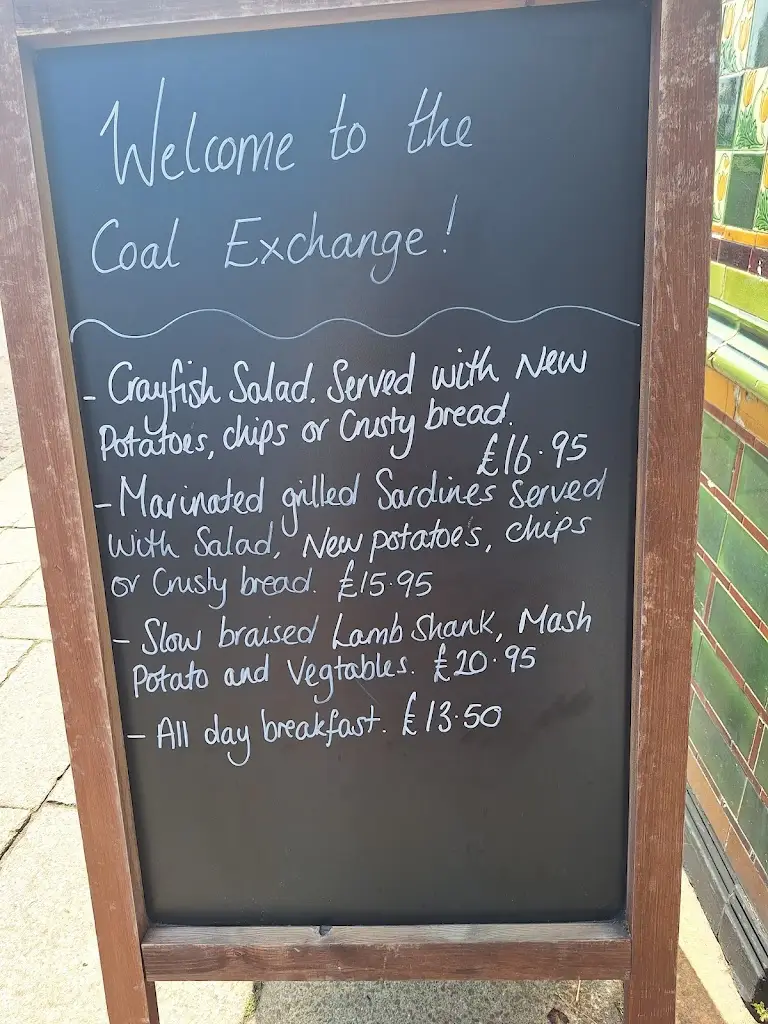 Welcome to the
Coal Exchange!
- Crayfish Salad. Served with New
Potatoes, chips or Crusty bread.
£16.95
- Marinated grilled Sardines Served
with Salad, New potatoe's, chips
or Crusty bread. £15.95
- Slow braised Lamb Shank, Mash
Potato and Vegtables. £20.95
- All day breakfast. £13.50